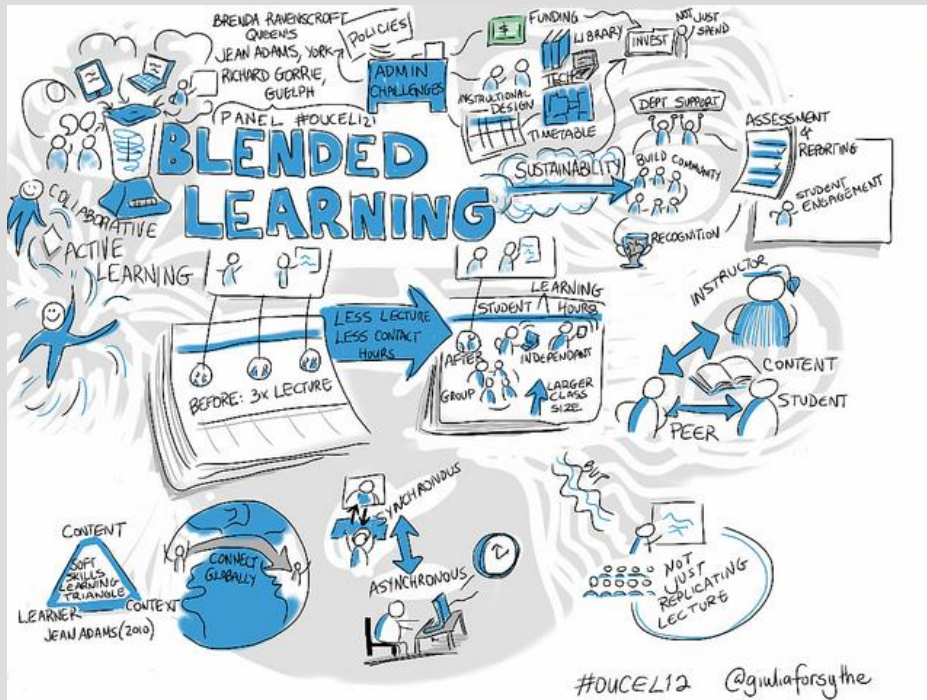 BRENDA RAVENSCROFT
QUEENS
JEAN ADAMS, YORK
RICHARD GORRIE,
GUELPH
PANEL #OUCEL12
POLICIES
ADMIN
CHALLENGES
$
FUNDING
LIBRARY
TECH
INSTRUCTIONAL
DESIGN
TIMETABLE
INVEST
NOT JUST
SPEND
BLENDED
LEARNING
SUSTAINABILITY
DEPT SUPPORT
BUILD COMMUNITY
RECOGNITION
ASSESSMENT
&
REPORTING
STUDENT
ENGAGEMENT
COLLABORATIVE
ACTIVE
LEARNING
BEFORE: 3x LECTURE
LESS LECTURE
LESS CONTACT
HOURS
LEARNING
STUDENT HOURS
AFTER
INDEPENDANT
GROUP
LARGER
CLASS
SIZE
INSTRUCTOR
CONTENT
STUDENT
PEER
CONTENT
SOFT
SKILLS
LEARNING
TRIANGLE
LEARNER
CONTEXT
JEAN ADAMS (2010)
CONNECT
GLOBALLY
SYNCHRONOUS
ASYNCHRONOUS
BUT
NOT
JUST
REPLICATING
LECTURE
#OUCEL12 @giuliaforsythe